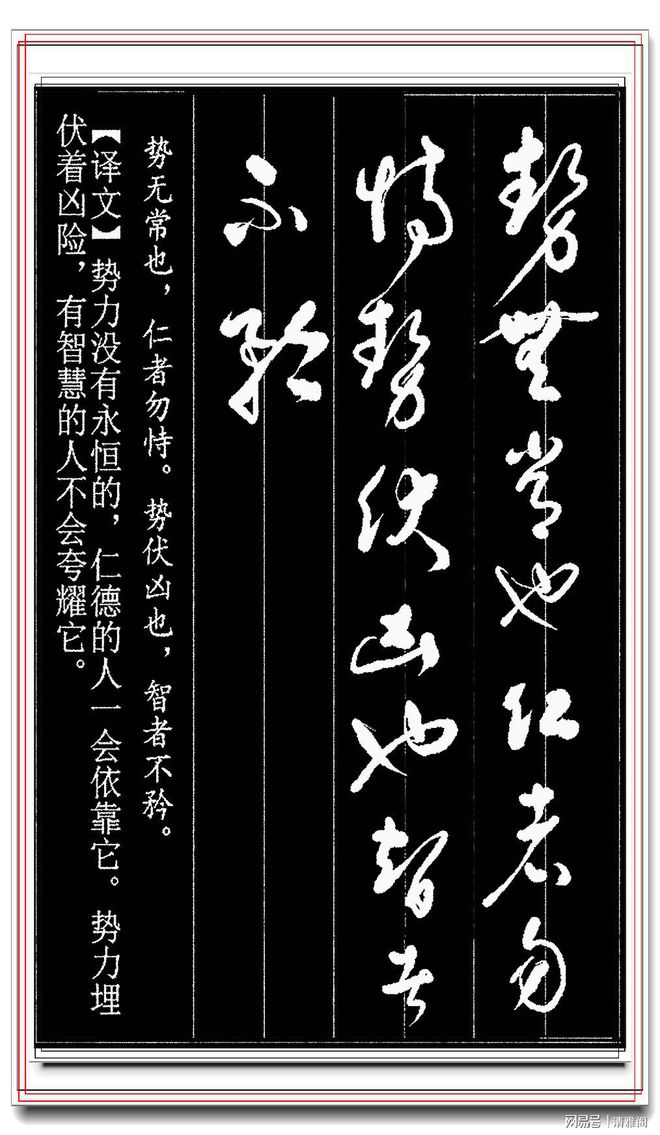 勢無常也仁者勿
恃勢伏凶也智者
不矜
势无常也，仁者勿恃。势伏凶也，智者不矜。
【译文】势力没有永恒的，仁德的人一会依靠它。势力埋
伏着凶险，有智慧的人不会夸耀它。
网易号|清雅阁